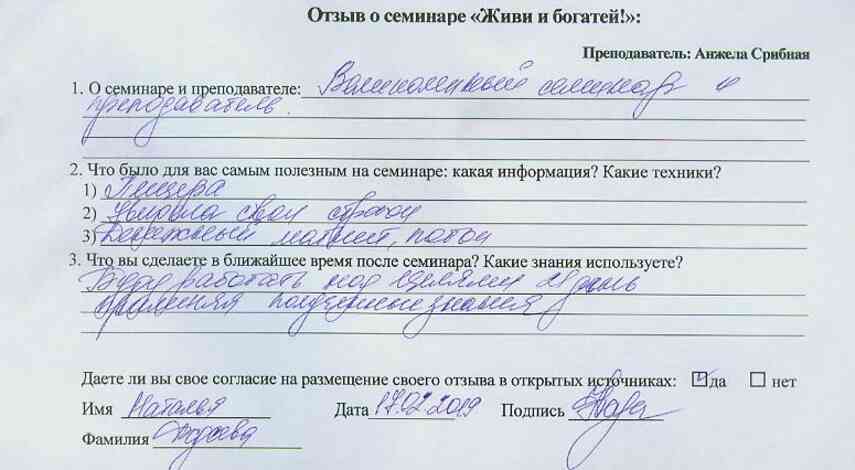 Отзыв о семинаре «Живи и богатей!»:
Преподаватель: Анжела Срибная
1. О семинаре и преподавателе: Великолепный семинар и
преподаватель.
2. Что было для вас самым полезным на семинаре: какая информация? Какие техники?
1) Пещера
2) Увидела свои страхи
3) Денежный магнит, поток
3. Что вы сделаете в ближайшее время после семинара? Какие знания используете?
Буду работать над целями 21 день
применяя полученные знания
Даете ли вы свое согласие на размещение своего отзыва в открытых источниках: да нет
Имя Наталья Дата 17.02.2019 Подпись
Фамилия